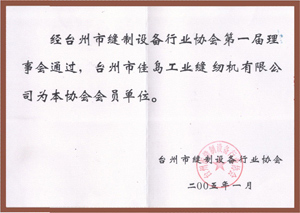 经台州市缝制设备行业协会第一届理
事会通过，台州市佳岛工业缝纫机有限公
司为本协会会员单位。
台州市缝制设备行业协会
二00五年一月